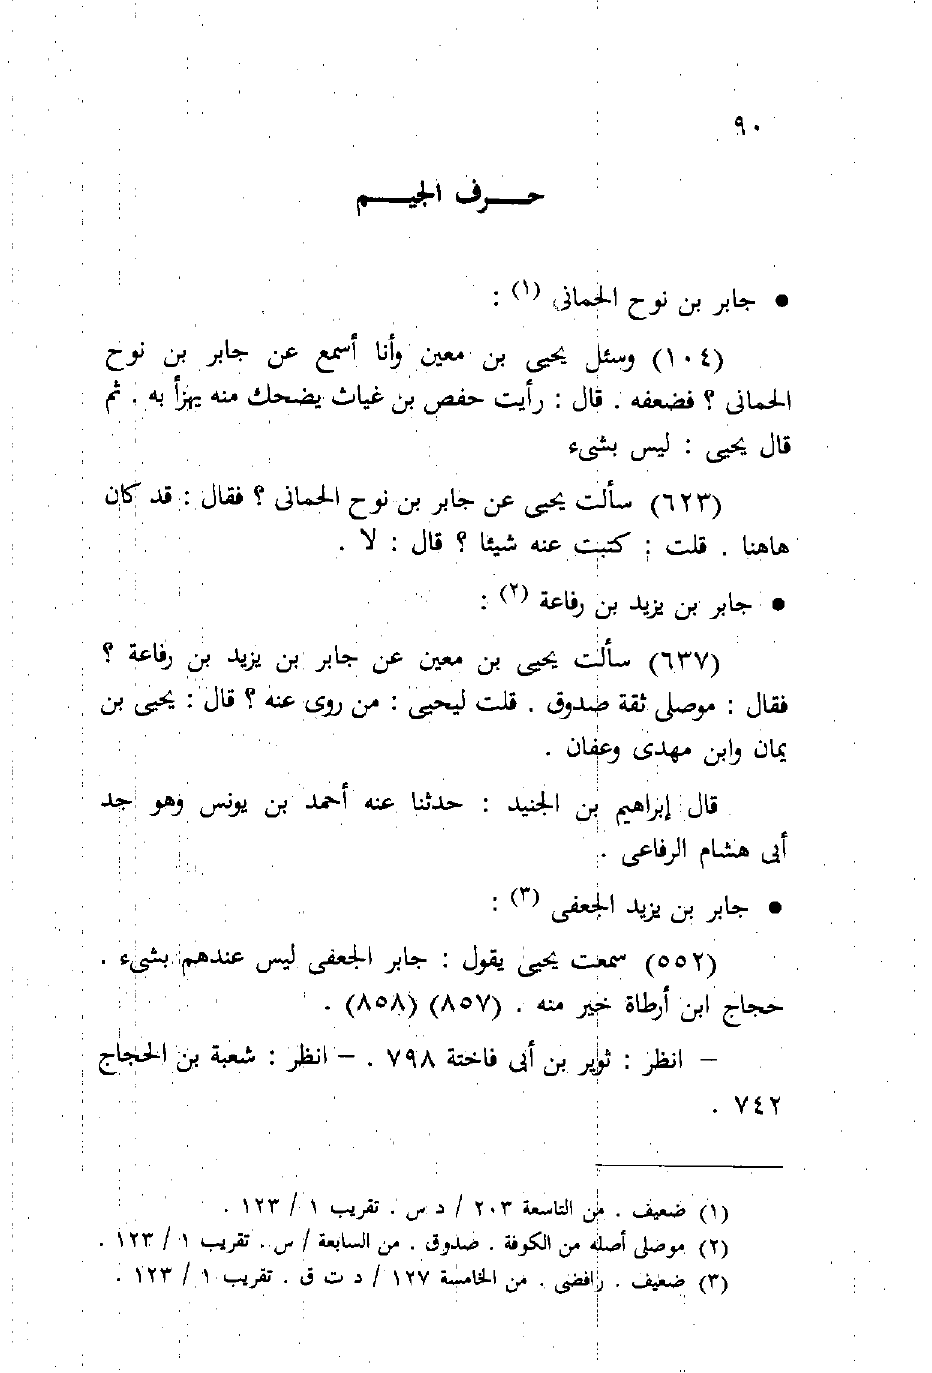 ٩٠
حــرف الجيــم
● جابر بن نوح الحمانى (١) :
(١٠٤) وسئل يحيى بن معين وأنا أسمع عن جابر بن نوح
الحمانى ؟ فضعفه . قال : رأيت حفص بن غياث يضحك منه يهزأ به . ثم
قال يحيى : ليس بشىء
(٦٢٣) سألت يحيى عن جابر بن نوح الحمانى ؟ فقال : قد كان
هاهنا . قلت : كتبت عنه شيئا ؟ قال : لا .
● جابر بن يزيد بن رفاعة (٢) :
(٦٣٧) سألت يحيى بن معين عن جابر بن يزيد بن رفاعة ؟
فقال : موصلى ثقة صدوق . قلت ليحيى : من روى عنه ؟ قال : يحيى بن
يمان وابن مهدى وعفان .
قال إبراهيم بن الجنيد : حدثنا عنه أحمد بن يونس وهو جد
أبى هشام الرفاعى .
● جابر بن يزيد الجعفى (٣) :
(٥٥٢) سمعت يحيى يقول : جابر الجعفى ليس عندهم بشىء .
حجاج ابن أرطاة خير منه . (٨٥٧) (٨٥٨) .
– انظر : ثوير بن أبى فاختة ٧٩٨ . – انظر : شعبة بن الحجاج
٧٤٢ .
(١) ضعيف . من التاسعة ٢٠٣ / د س . تقريب ١ / ١٢٣ .
(٢) موصلى أصله من الكوفة . صدوق . من السابعة / س . تقريب ١ / ١٢٣ .
(٣) ضعيف . رافضى . من الخامسة ١٢٧ / د ت ق . تقريب ١ / ١٢٣ .